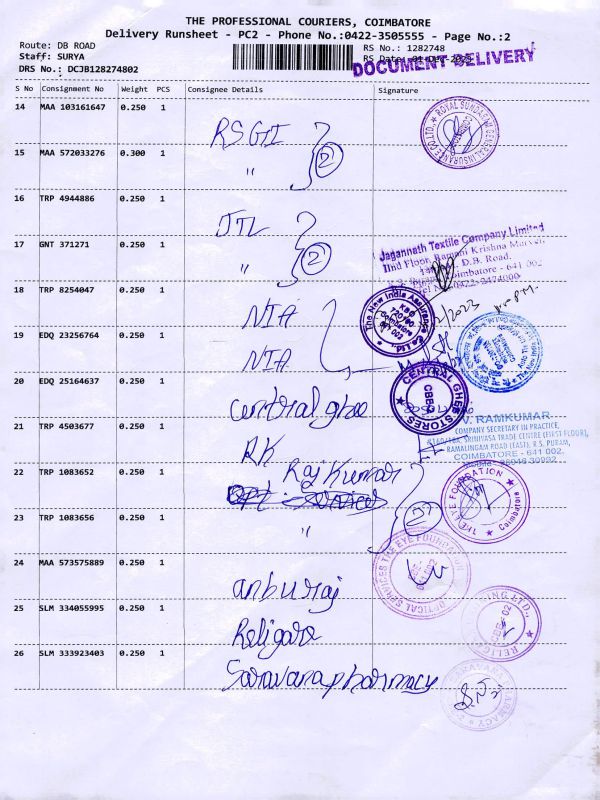 THE PROFESSIONAL COURIERS, COIMBATORE
Delivery Runsheet - PC2 - Phone No.:0422-3505555 - Page No.:2
Route: DB ROAD
RS No.: 1282748
Staff: SURYA
RS Date: 01-Dec-2023
DOCUMENT DELIVERY
DRS No.: DCJB128274802
S No Consignment No Weight PCS Consignee Details Signature
14 MAA 103161647 0.250 1
RSGI
ROYAL SUNDARAM GENERAL INSURANCE CO. LTD.
2
15 MAA 572033276 0.300 1
"
16 TRP 4944886 0.250 1
JTL
Jagannath Textile Company Limited
IInd Floor,
D.B. Road.
Coimbatore - 641 002
2
17 GNT 371271 0.250 1
"
18 TRP 8254047 0.250 1
NIA
The New India Assurance Co. Ltd.
KBO
720700
Coimbatore
641 002
19 EDQ 23256764 0.250 1
NIA
20 EDQ 25164637 0.250 1
Central ghee
CENTRAL GHEE STORES
CBE-2
21 TRP 4503677 0.250 1
RK
V. RAMKUMAR
COMPANY SECRETARY IN PRACTICE,
SRINIVASA TRADE CENTRE (FIRST FLOOR),
RAMALINGAM ROAD (EAST), R.S. PURAM,
COIMBATORE - 641 002.
22 TRP 1083652 0.250 1
Raj Kumar
THE EYE FOUNDATION
Coimbatore
2
23 TRP 1083656 0.250 1
"
24 MAA 573575889 0.250 1
OPTICAL SERVICES THE EYE FOUNDATION
anburaj
25 SLM 334055995 0.250 1
Religare
26 SLM 333923403 0.250 1
Saravana pharmacy